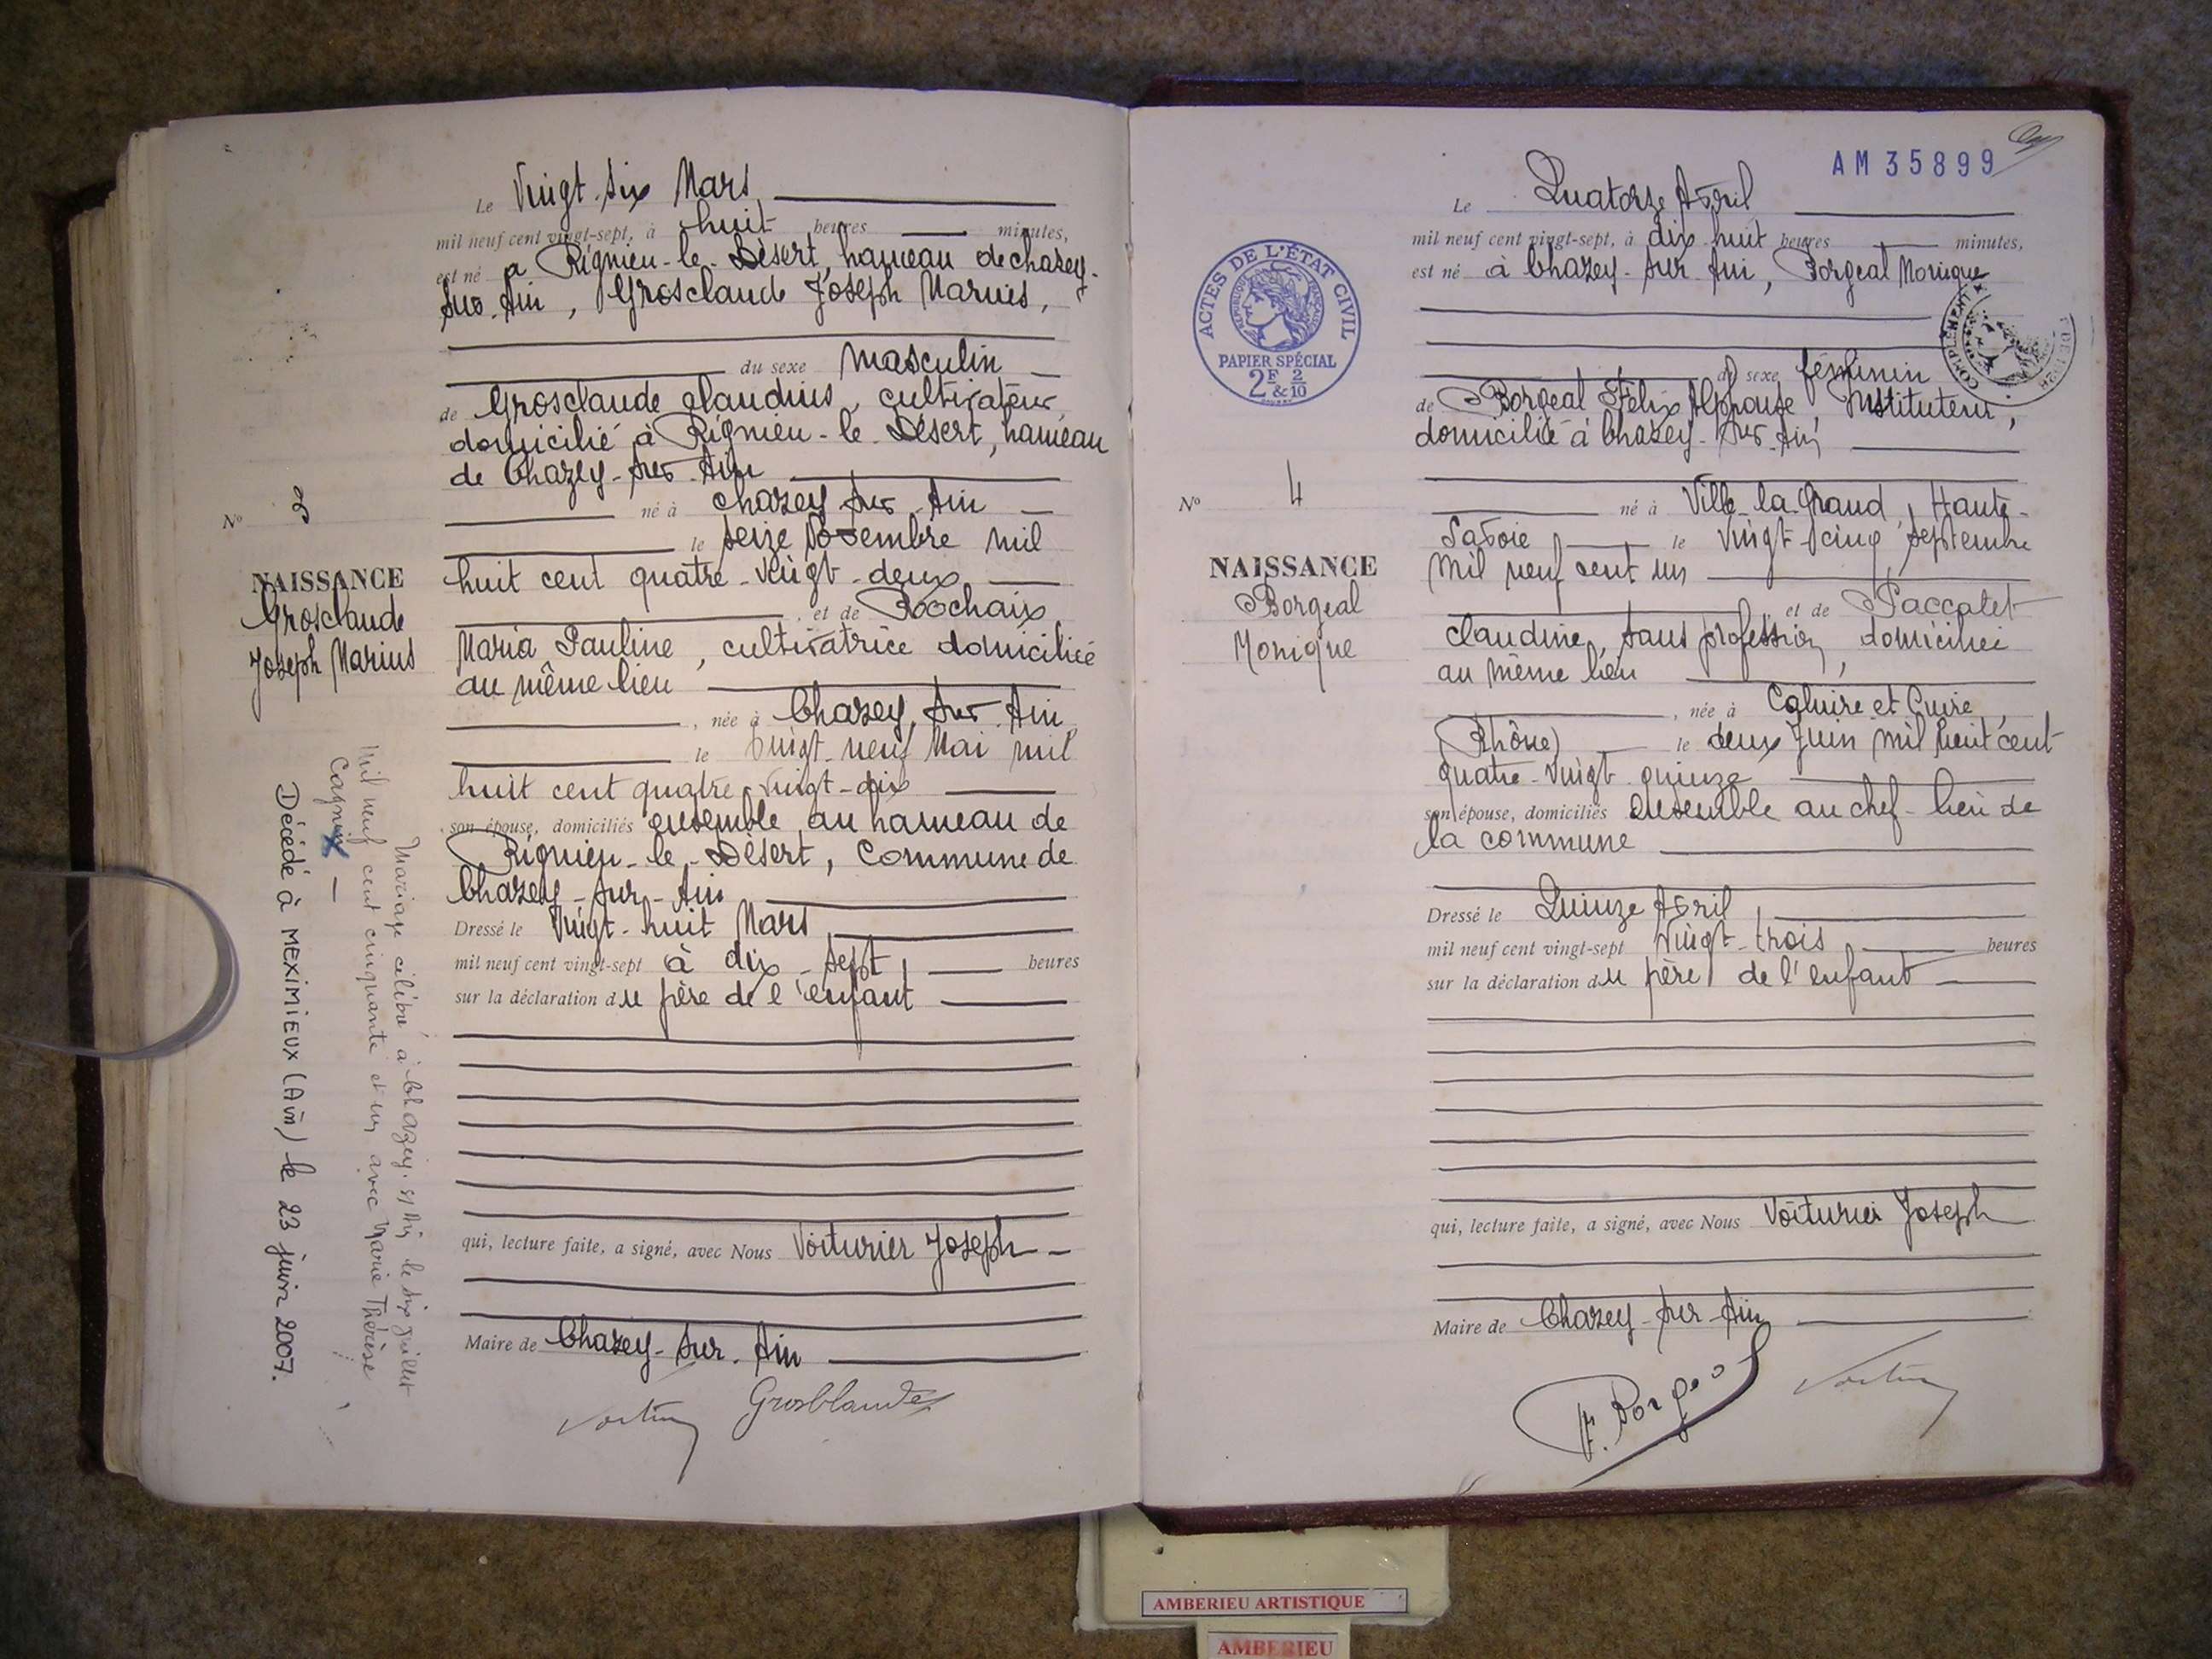 Le Vingt-six Mars
mil neuf cent vingt-sept, à huit heures minutes,
est né à Rignieu-le-Désert, hameau de chazey-
sur-Ain, Grosclaude Joseph Marius,
du sexe masculin
de Grosclaude claudius, cultivateur,
domicilié à Rignieu-le-Désert, hameau
de Chazey-sur-Ain
né à chazey-sur-Ain
le seize Novembre mil
huit cent quatre-vingt-deux
, et de Rochaix
Maria Pauline, cultivatrice domiciliée
au même lieu
, née à Chazey-sur-Ain
le vingt-neuf Mai mil
huit cent quatre-vingt-dix
son épouse, domiciliés ensemble au hameau de
Rignieu-le-Désert, Commune de
Chazey-sur-Ain
Dressé le Vingt-huit Mars
mil neuf cent vingt-sept à dix-sept heures
sur la déclaration du père de l'enfant
qui, lecture faite, a signé, avec Nous Voiturier Joseph
Maire de Chazey-sur-Ain
Grosclaude
No 3
NAISSANCE
Grosclaude
Joseph Marius
Mariage célébré à Chazey-s/Ain le six juillet
mil neuf cent cinquante et un avec Marie Thérèse
Décédé à MEXIMIEUX (Ain) le 23 juin 2007.
AM 35899
ACTES DE L'ÉTAT CIVIL
RÉPUBLIQUE FRANÇAISE
PAPIER SPÉCIAL
2F & 2/10
COMPLEMENT
Le Quatorze Avril
mil neuf cent vingt-sept, à dix huit heures minutes,
est né à Chazey-sur-Ain, Borgeal Monique
du sexe féminin
de Borgeal Félix Alphonse, Instituteur,
domicilié à Chazey-sur-Ain
né à Ville-la-Grand, Haute-
Savoie le vingt-cinq septembre
mil neuf cent un
, et de Paccalet
Claudine, sans profession, domiciliée
au même lieu
, née à Caluire et Cuire,
(Rhône) le deux Juin mil huit cent
quatre-vingt quinze
son épouse, domiciliés ensemble au chef-lieu de
la commune
Dressé le Quinze Avril
mil neuf cent vingt-sept Vingt-trois heures
sur la déclaration du père de l'enfant
qui, lecture faite, a signé, avec Nous Voiturier Joseph
Maire de Chazey-sur-Ain
F. Borgeal
No 4
NAISSANCE
Borgeal
Monique
AMBERIEU ARTISTIQUE
AMBERIEU